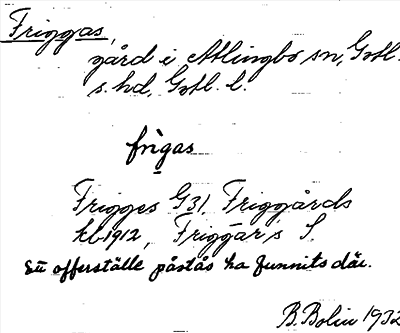 Friggas,
gård i Atlingbo sn, Gotl.
s. hd, Gotl. l.
frigas
Frigges G31, Friggårds
kb 1912, Friggår's S.
Ett offerställe påstås ha funnits där.
B. Bolin 1932